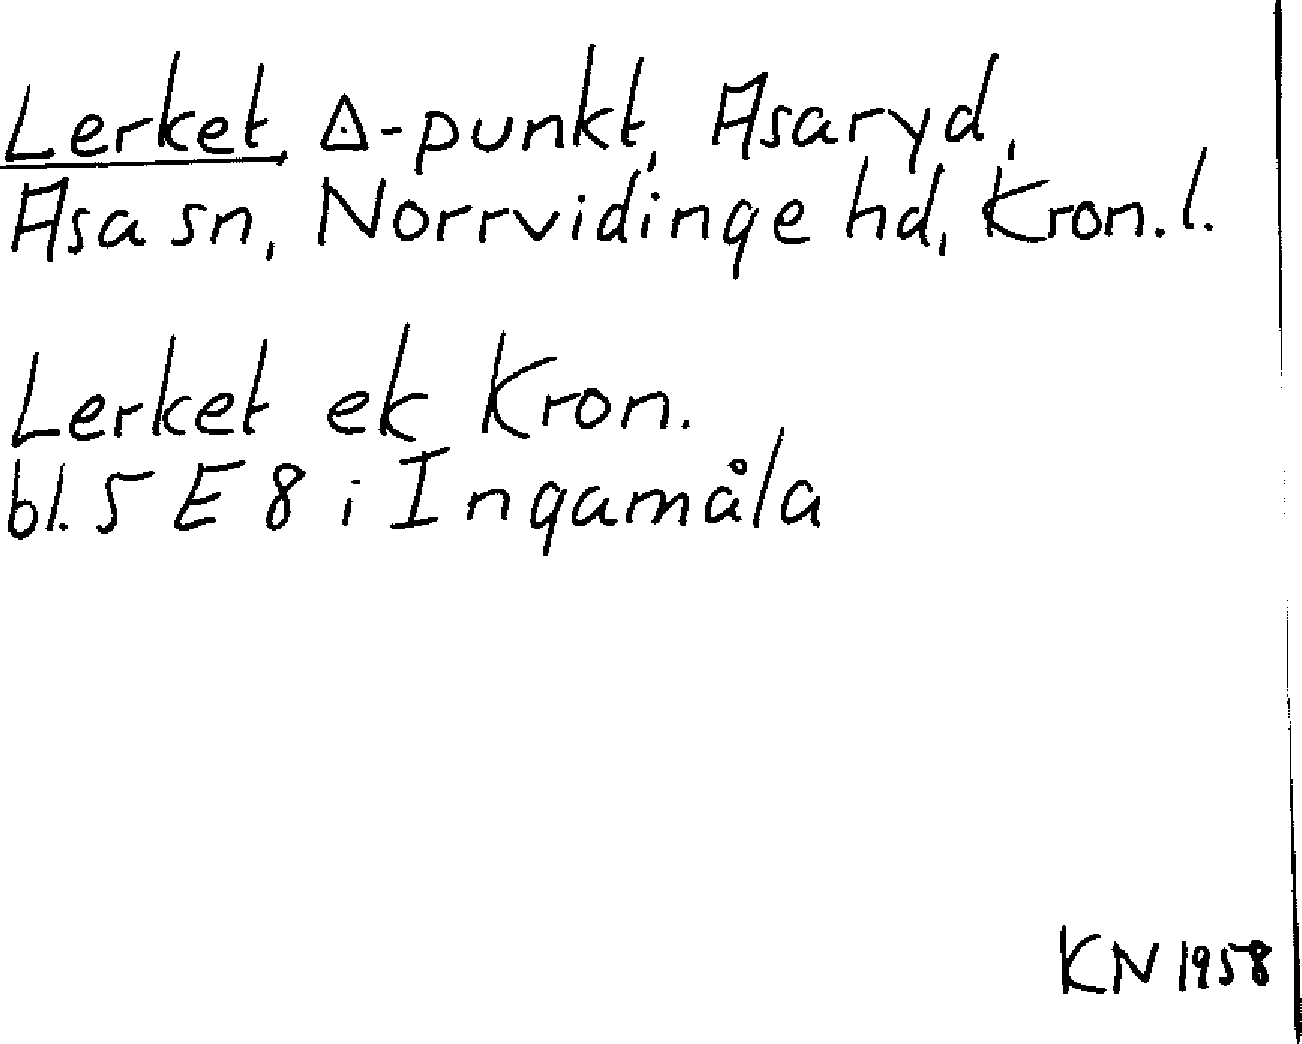 Lerket, ∆-punkt, Asaryd,
Asa sn, Norrvidinge hd, Kron. l.
Lerket ek Kron.
bl. 5 E 8 i Ingamåla
KN 1958